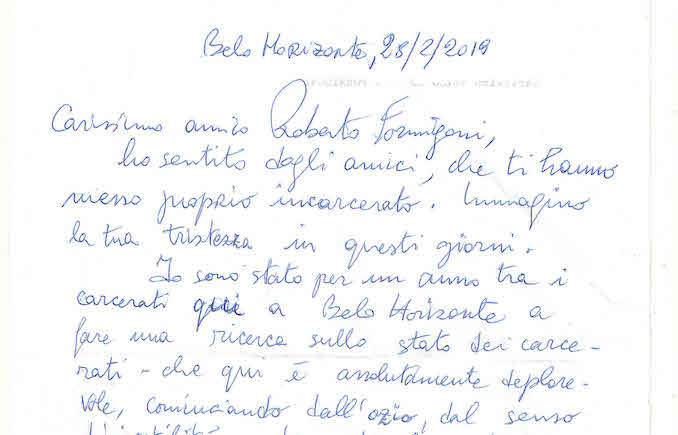 Belo Horizonte, 28/2/2019
Carissimo amico Roberto Formigoni,
ho sentito dagli amici, che ti hanno
messo proprio incarcerato. Immagino
la tua tristezza in questi giorni.
Io sono stato per un anno tra i
carcerati qui a Belo Horizonte a
fare una ricerca sullo stato dei carce-
rati - che qui è assolutamente deplore-
vole, cominciando dall'ozio, dal senso